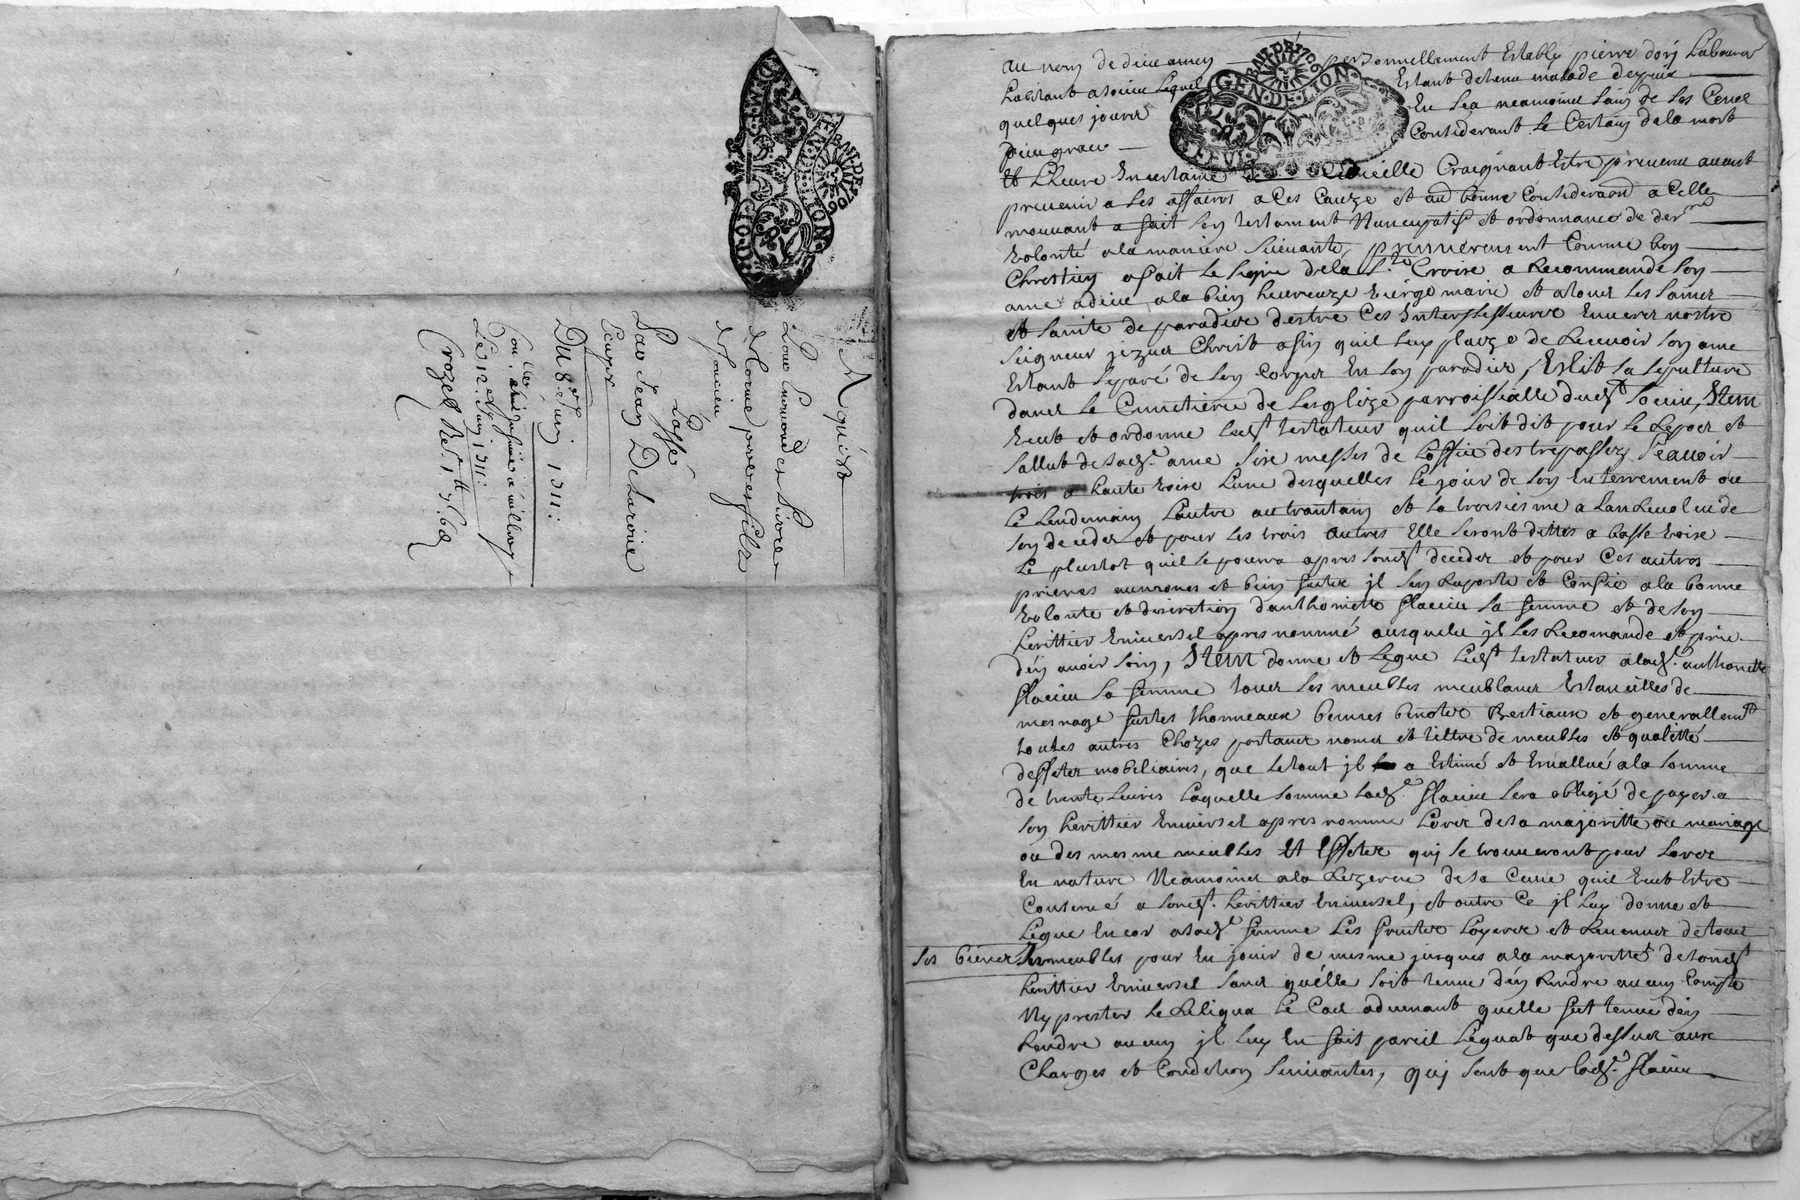 Aquist
Pour Emond et Pierre
de Corme pere et filz
de Soucieu
Passé
Par Jean Delaroüe
Du 8e Juin 1711:
Le 12e Juin 1711:
Crozet
GEN·DE·LION
au nom de dieu amen personnellement Estably pierre dorj Laboureur
habitant a Soucieu Lequel Estant detenu malade depuis
quelques jours En sea neamoins sain de ses Cene
dieu grace Considerant le Certain de la mort
Et L'heure Incertaine Craignant Estre prevenu avant
prevenir a ses affaires a Ces Cauze et au bonne Consideraon a Celle
mouvant a fait son testament Nuncupatif et ordonnance de derre
volonté a la maniere suivante, premierement Comme bon
Chrestien a fait le signe de la Ste Croix a Recommandé son
ame a dieu a la bien heureuze vierge marie et a tous les sainct
et sainte de paradix destre Ces Intersesseurs Envers nostre
seigneur jezus Christ afin quil luy plaize de Recevoir son ame
Estant separé de son Corps En son paradix, Eslit sa sepulture
dans le Cimetiere de Lesglize parroissialle dudt Soucieu, Item
veut et ordonne ledt testateur quil soit dit pour le Repos et
sallut de sadte ame sixe messes de Loffice des trepassez scavoir
trois a haute voix Lune desquelles le jour de son Enterrement ou
le Lendemain Lautre au trantain et la troisiesme a Lan Revolu de
son deceder et pour les trois autres Elle seront dittes a basse voix
Le plustot quil se pourra apres sondt deceder et pour Ces autres
prieres aumones et bien faitx il sen Raporte et Confie a la bonne
volonte et discretion danthoniette flacieu sa femme et de son
herittier universel apres nommé ausquels il les Recomande et prie
den avoir soin, Item donne et Legue Ledt testateur a ladte anthoniette
flacieu sa femme tous les meubles meublans Estancilles de
mesnage futes thonneaux bennes benotes Bestiaux et generallemt
toutes autres Chozes portant nomes et tiltre de meubles et qualitté
deffets mobiliaires, que le tout il a Estimé et Envallué a la somme
de trente Livres Laquelle somme ladte flacieu sera obligé de payer a
son herittier universel apres nomme Lors de sa majoritte ou mariage
ou des mesme meubles Et Effets quj se trouveront pour Lors
En nature Neamoins a la Rezerve de sa Cuve quil veut Estre
Conservé a sondt herittier universel, et outre Ce il luy donne et
Legue Encor a sadte femme Les fruits Loyers et Revenus de tous
ses biens Immeubles pour En jouir de mesme jusques a la majoritté de sondt
herittier universel sans quélle soit tenue dén Rendre aucun Compte
Ny prester le Reliqua Le Cas advenant quelle fut tenue den
Rendre aucun il luy En fait pareil Leguat que dessus aux
Charges et Condition suivantes, quj sont que ladte flacieu